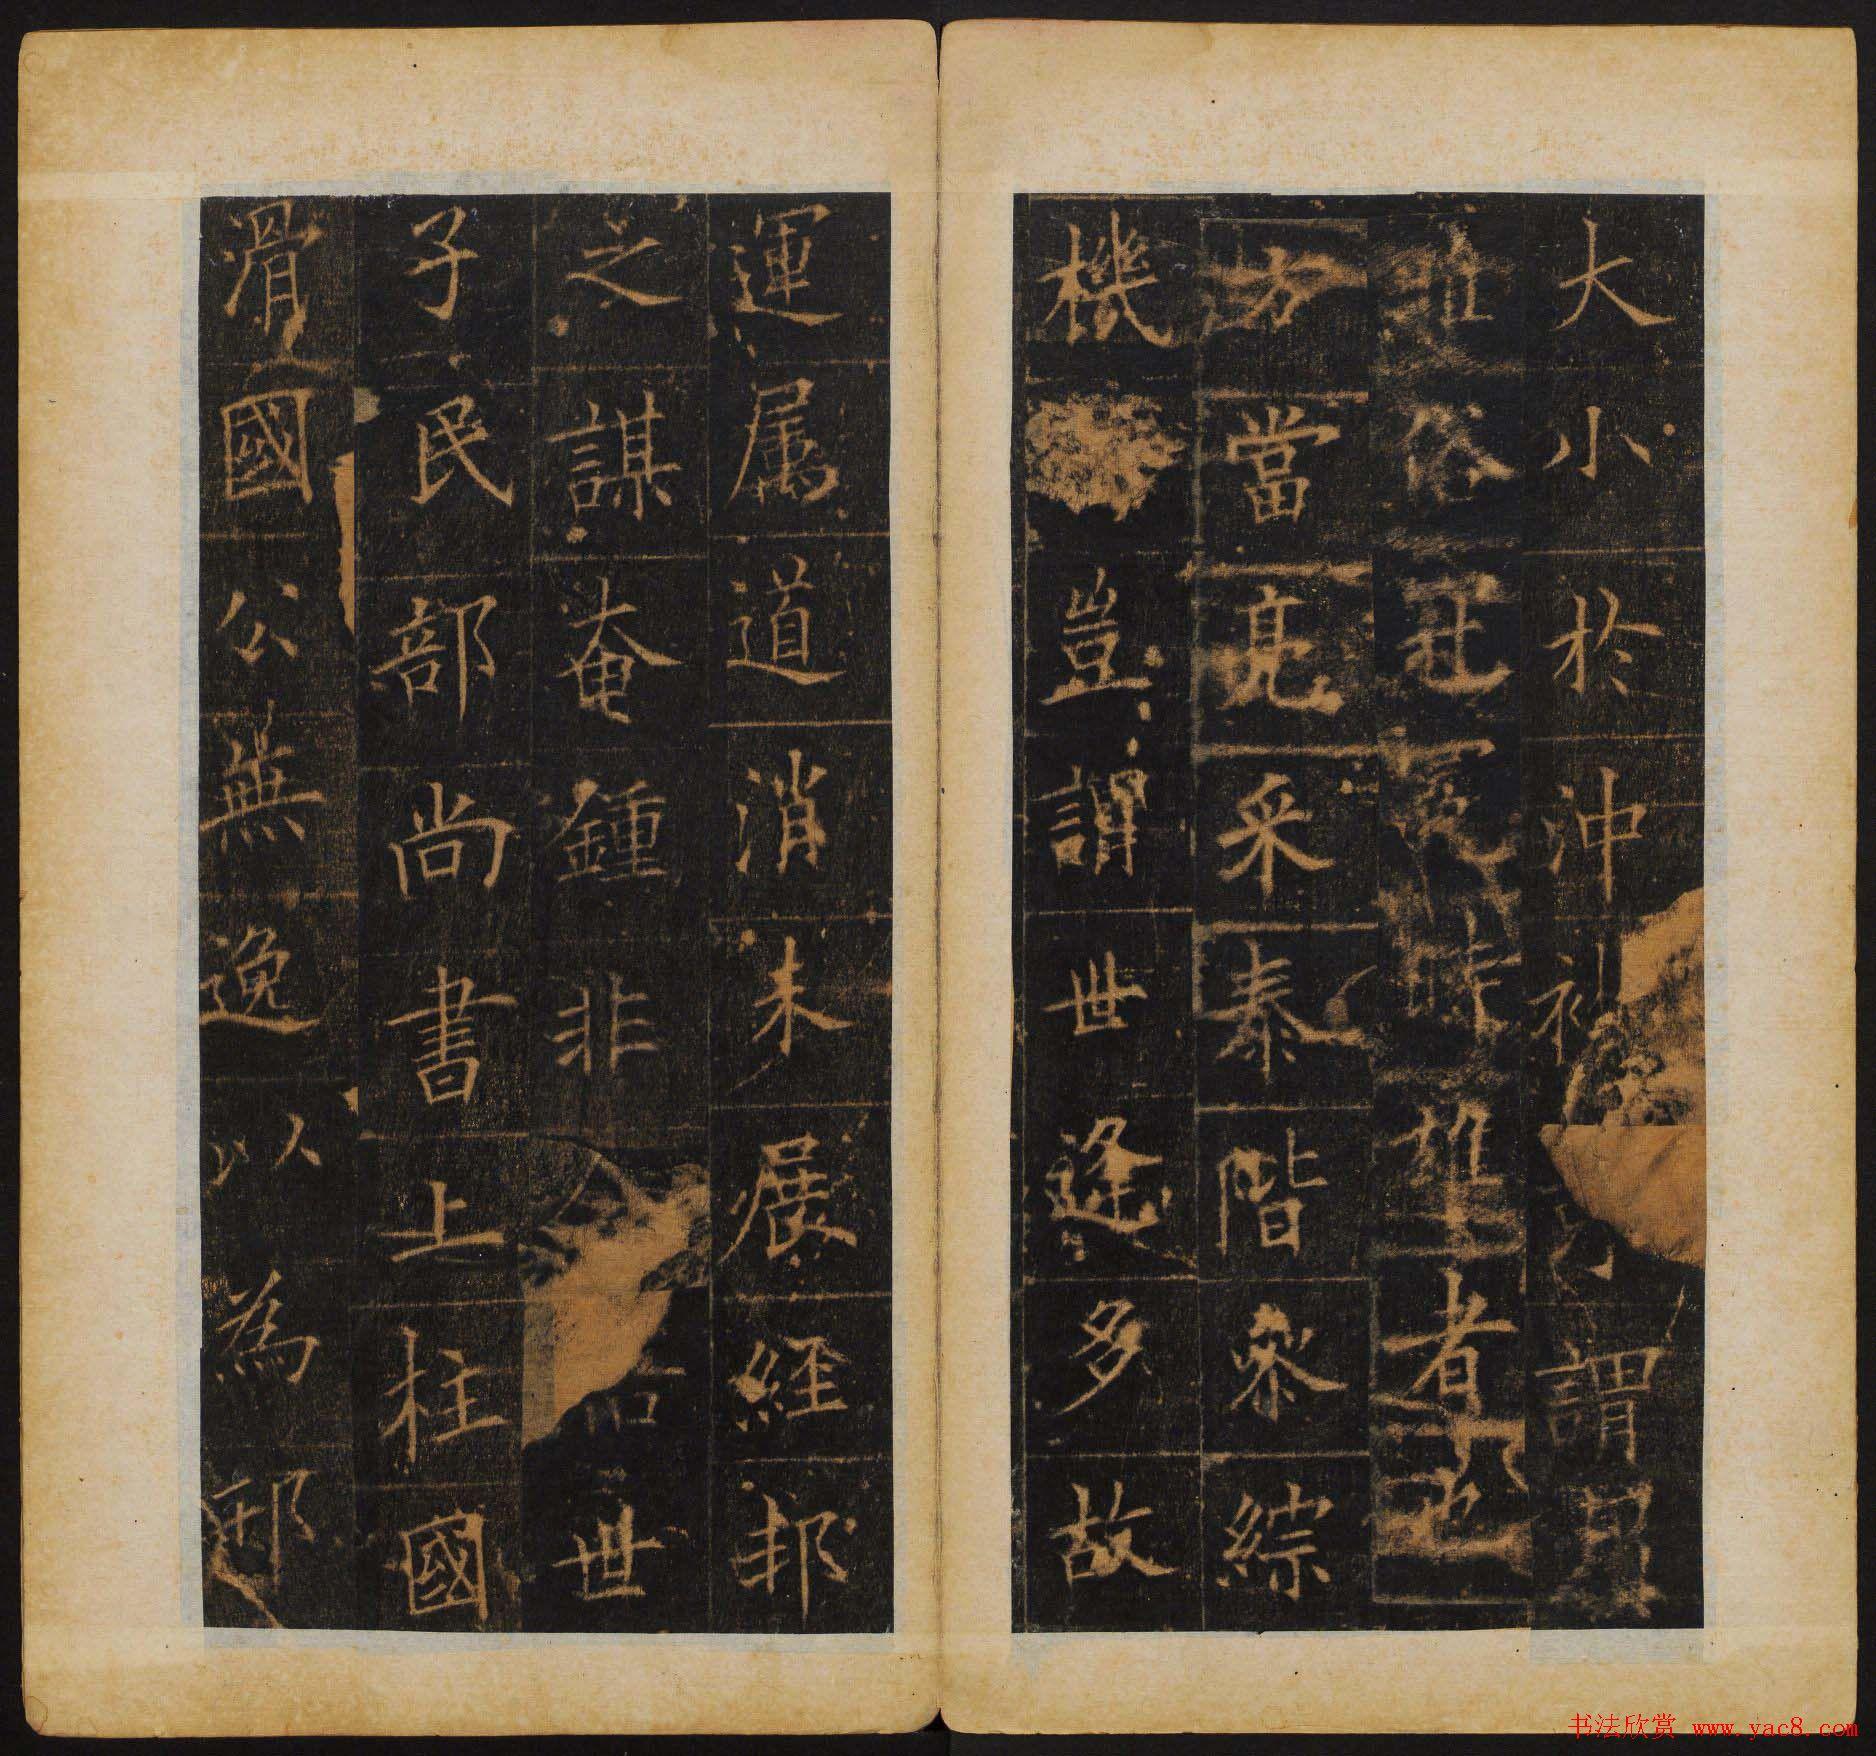 大小於沖謂
雅俗冠冕時雄者也
方當亮采泰階參綜
機豈謂世逢多故
運属道消未展經邦
之謀奄鍾非世
子民部尚書上柱國
滑國公無逸以為邢
书法欣赏 www.yac8.com